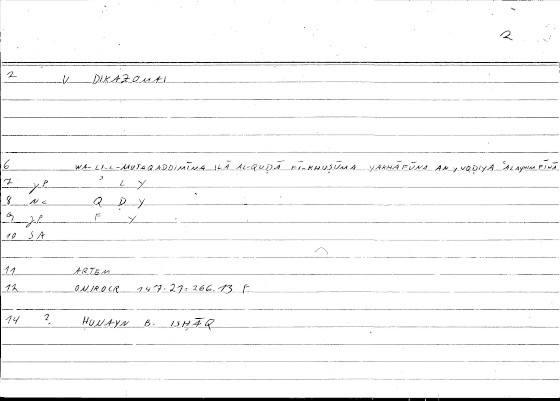 2
2 V DIKAZOMAI
6 WA-LI-L-MUTAQADDIMĪNA ILĀ AL-QUḌĀ FĪ-KHUṢŪMA YAKHĀFŪNA AN YUQDIYA ʿALAYHIM
7 γP ʾ L Y
8 NC Q Ḍ Y
9 γP F Y
10 SA
11 ARTEM
12 ONIROCR 147.21:266.13 F
14 ?. ḤUNAYN B. ISḤĀQ